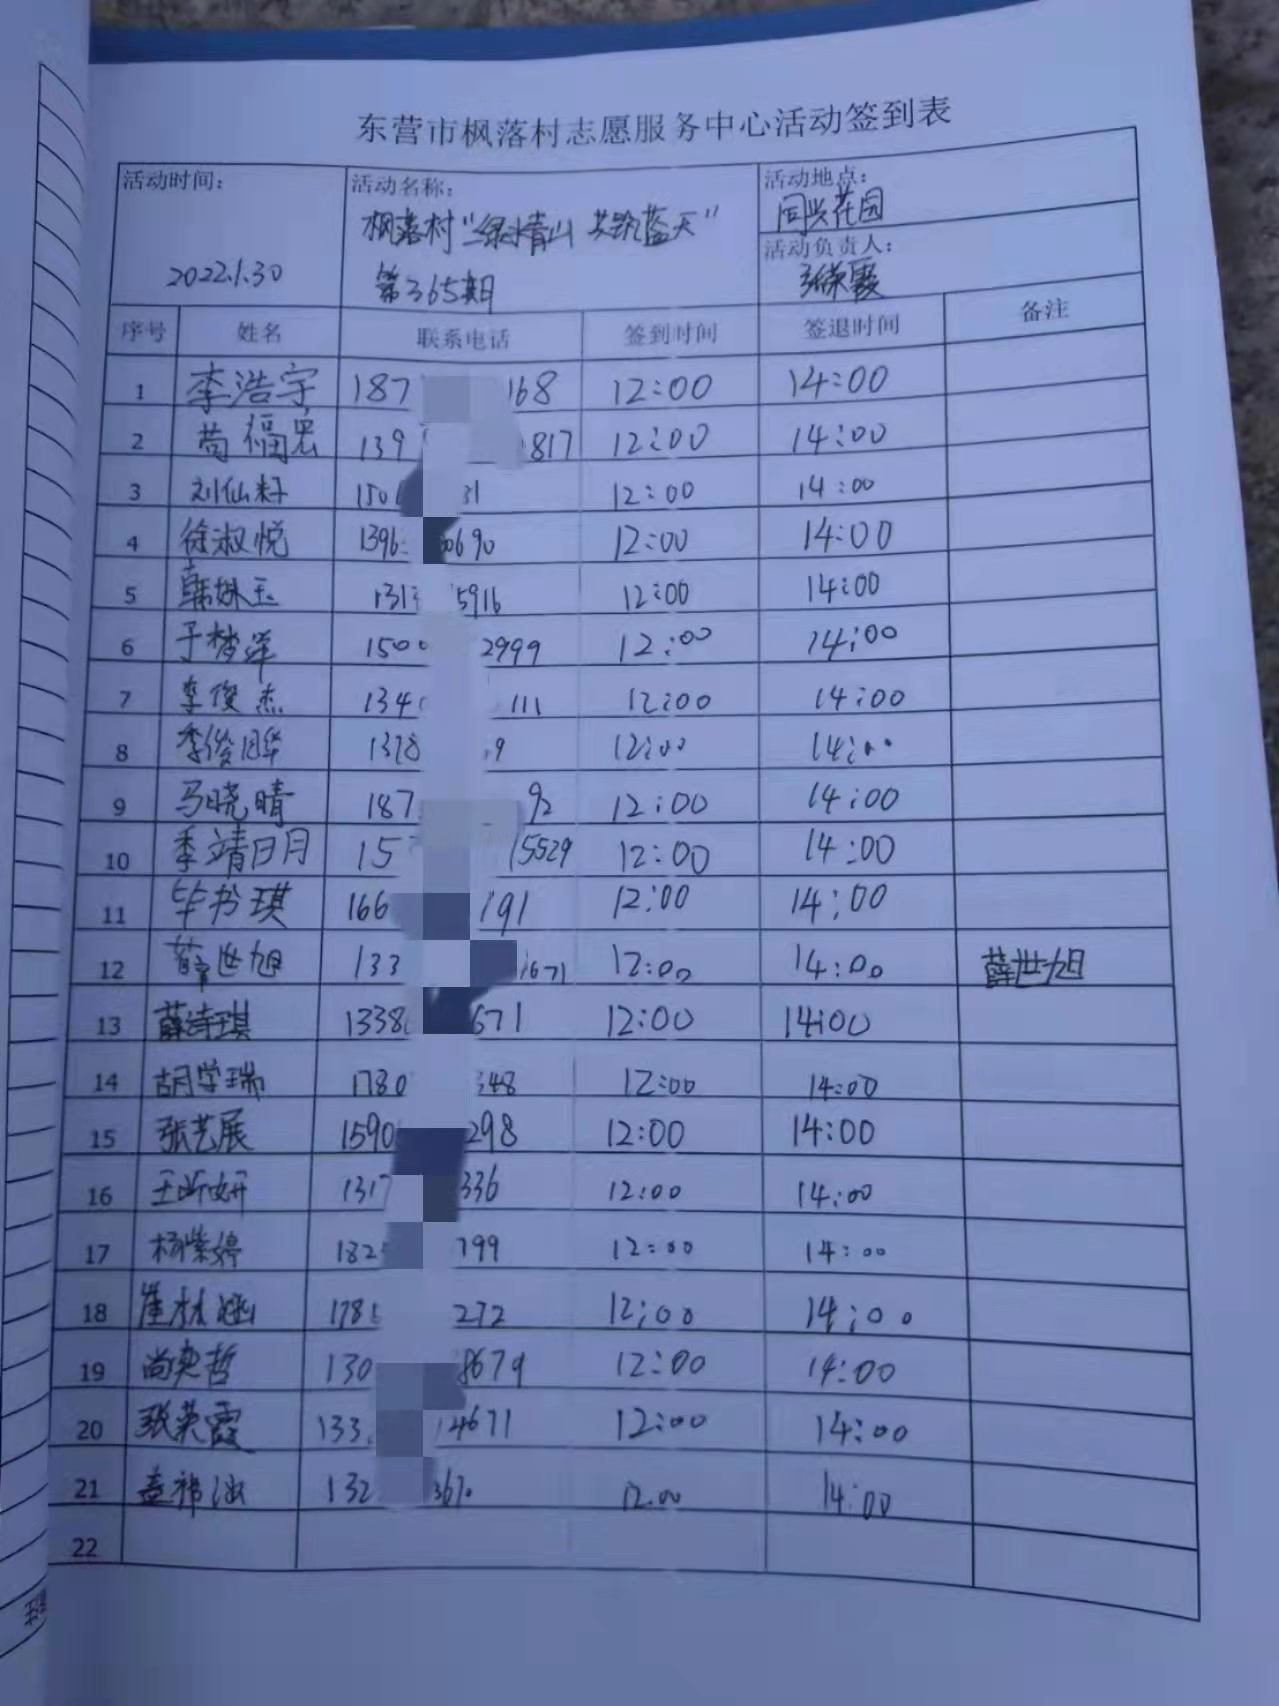 东营市枫落村志愿服务中心活动签到表
活动时间: 2022.1.30
活动名称: 枫落村"绿水青山 共筑蓝天"
第365期
活动地点: 同兴花园
活动负责人: 张荣霞
序号 姓名 联系电话 签到时间 签退时间 备注
1 李浩宇 187 168 12:00 14:00
2 苟福宏 139 817 12:00 14:00
3 刘仙籽 150 31 12:00 14:00
4 徐淑悦 1396 0690 12:00 14:00
5 韩姝玉 131 5916 12:00 14:00
6 于梦洋 1500 2999 12:00 14:00
7 李俊杰 134 111 12:00 14:00
8 季俊晔 1378 9 12:00 14:00
9 马晓晴 187 92 12:00 14:00
10 季靖明 15 15529 12:00 14:00
11 毕书琪 166 191 12:00 14:00
12 薛世旭 133 1671 12:00 14:00 薛世旭
13 薛诗琪 1338 671 12:00 14:00
14 胡学瑞 1780 348 12:00 14:00
15 张艺展 1590 298 12:00 14:00
16 王昕妍 1317 336 12:00 14:00
17 杨紫婷 182 799 12:00 14:00
18 崔林涵 178 272 12:00 14:00
19 尚奕哲 130 8679 12:00 14:00
20 张荣霞 133 14671 12:00 14:00
21 132 367 12.00 14:00
22